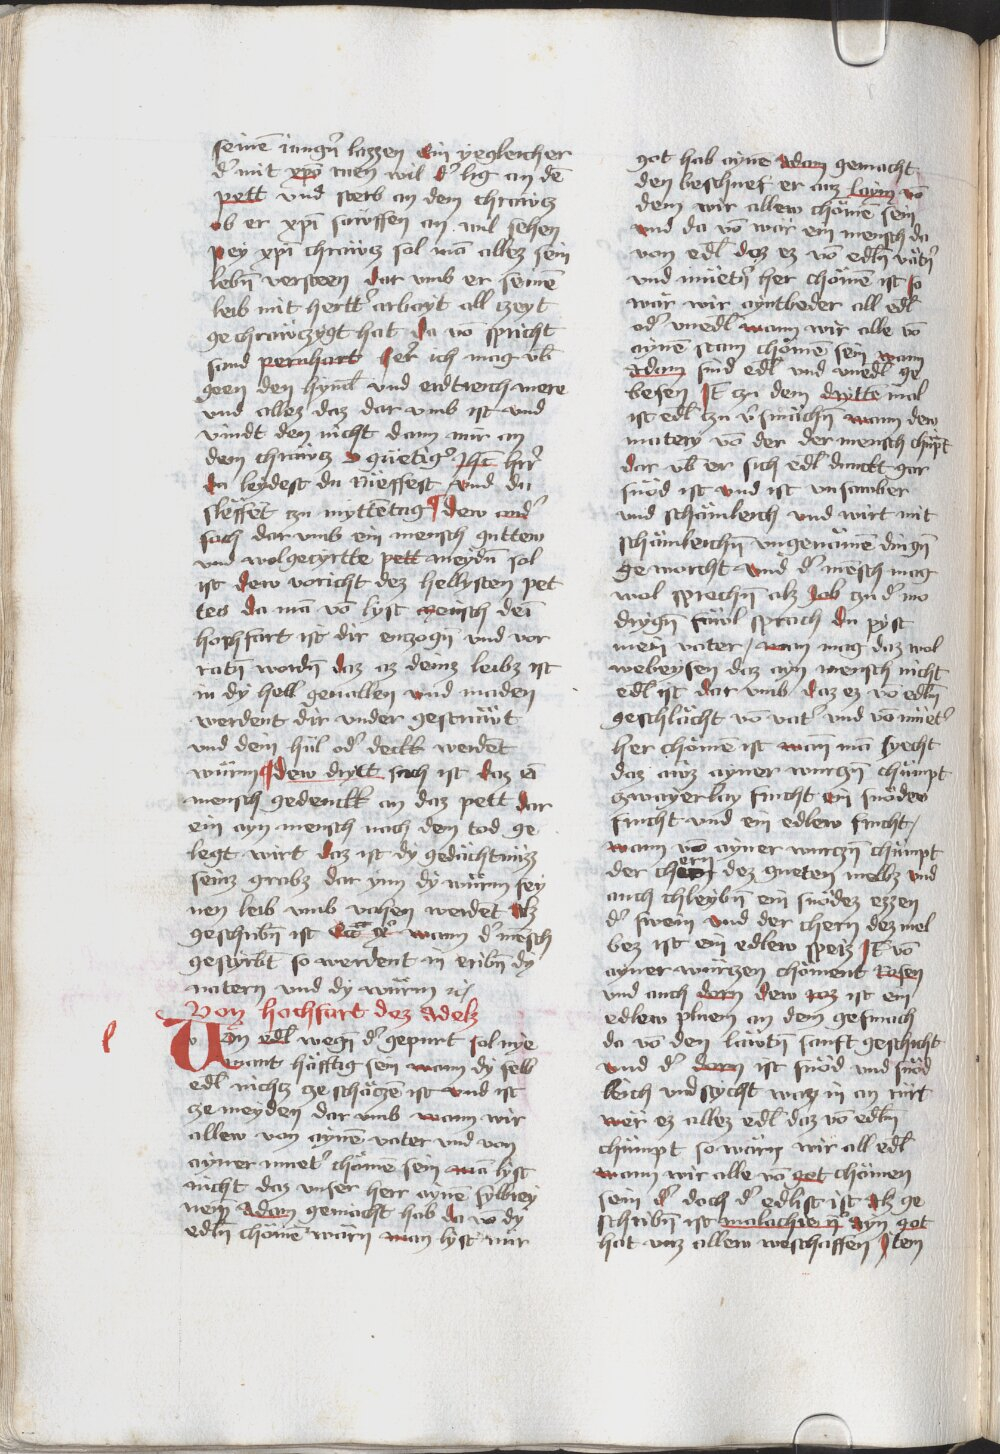 seinē iungñ lazzen Ein yegleicher
d' mit xp̄o wen wil d' lig an dē
pett vnd sterb an dem chrawcz
ob er xp̄i süessen an wil sehen
pey xp̄i chrawcz sol mā allez sein
lebñ versteen dar vmb er seinē
leib mit hertt' arbayt all czeyt
gechrawczygt hat da vō spricht
sand pernhart Jer ich mag vb̄
geen den hyml vnd erdtreich mere
vnd allez daz dar vmb ist vnd
vindt den nicht dann nür an
dem chrawcz O güetig' Jhū h'rr
du leydest du Rüeffest Vnd du
sleffēt czu myttētag ¶ dew and'
sach dar vmb ein mensch guttew
vnd wolgecyrtte pett meydñ sol
ist dew voricht dez hellysten pet
tes da mā vō lyst mensch dei
hochfart ist dir enczogñ vnd vor
ratñ wordñ daz az deinz leibz ist
in dy hell geuallen vnd maden
werdent dir vnder gesträwt
vnd dein hül od' deckk werdēt
würm ¶ dew drytt sach ist daz ei
mensch gedenckk an daz pett dar
ein ayn mensch nach dem tod ge
legt wirt daz ist dy gedächtnüz
seinz grabz dar ynn dy würm sey
nen leib vmb vahen werdēt Alz
geschribñ ist wann d' mēsch
gestyrbt so werdent in eribñ dy
natern vnd dy würm
Von hochfart dez Adelz
Von edl wegñ d' gepurt sol nye
mant häfftig sein wann dy selb
edl nichcz ze schäczē ist vnd ist
ze meyden dar vmb wann wir
allew von aynē vater vnd von
ayner muet' chömē sein mā lyst
nicht daz vnser herr aynē sylbrey
nem Adam gemacht hab da vō dy
edlñ chömē wärn man lyst nür
got hab aynē Adam gemacht
den beschueff er aus laym vō
dem wir allew chömē sein
vnd da vō war ein mensch da
von edl daz ez vō edlñ vät'ñ
vnd müet'ñ her chömē ist so
wär wir ayntbeder all edl
od' vnedl wann wir alle vō
aynē stam chömē sein wann
Adam sind edl vnd vnedl ge
besen Jt̄ czu dem drytte mal
ist edl czu v'smächñ wann dew
matery vō der der mensch chüpt
dar vb er sich edl dunckt gar
snöd ist vnd ist vnsawber
vnd schämleich vnd wirt mit
schämleichñ vngenämē dingñ
geworcht Vnd d' mēsch mag
wol sprechñ alz Job czu d' mo
drygñ fäwl sprach du pyst
mein vater / man mag daz wol
webeysen daz ayn mensch nicht
edl ist dar vmb daz ez vō edlñ
geschlächt vō vat' vnd vō müet'
her chömē ist wann mā syecht
daz awz ayner wurczñ chümpt
czwayerlay frucht ein snödew
frucht vnd ein edlew frucht /
wann vō ayner wurczñ chümpt
der chern dez gueten melbz vnd
auch chleybñ ein snödez ezzen
d' swein vnd der chern dez mel
bez ist ein edlew speiz Jt̄ vō
ayner würczen chöment Rosen
vnd auch dorn dew roz ist ein
edlew pluem an dem gesmach
da vō den läwtñ sanft geschicht
vnd d' dorn ist snöd vnd snöd
leich vnd stycht waz in an rürt
wer ez allez edl daz vō edlñ
chümpt so wärñ wir all edl
wann wir alle vō got chömen
sein d' doch d' edlist ist Alz ge
schribñ ist malachie ij° Ayn got
hat vnz allew weschaffen Jtem